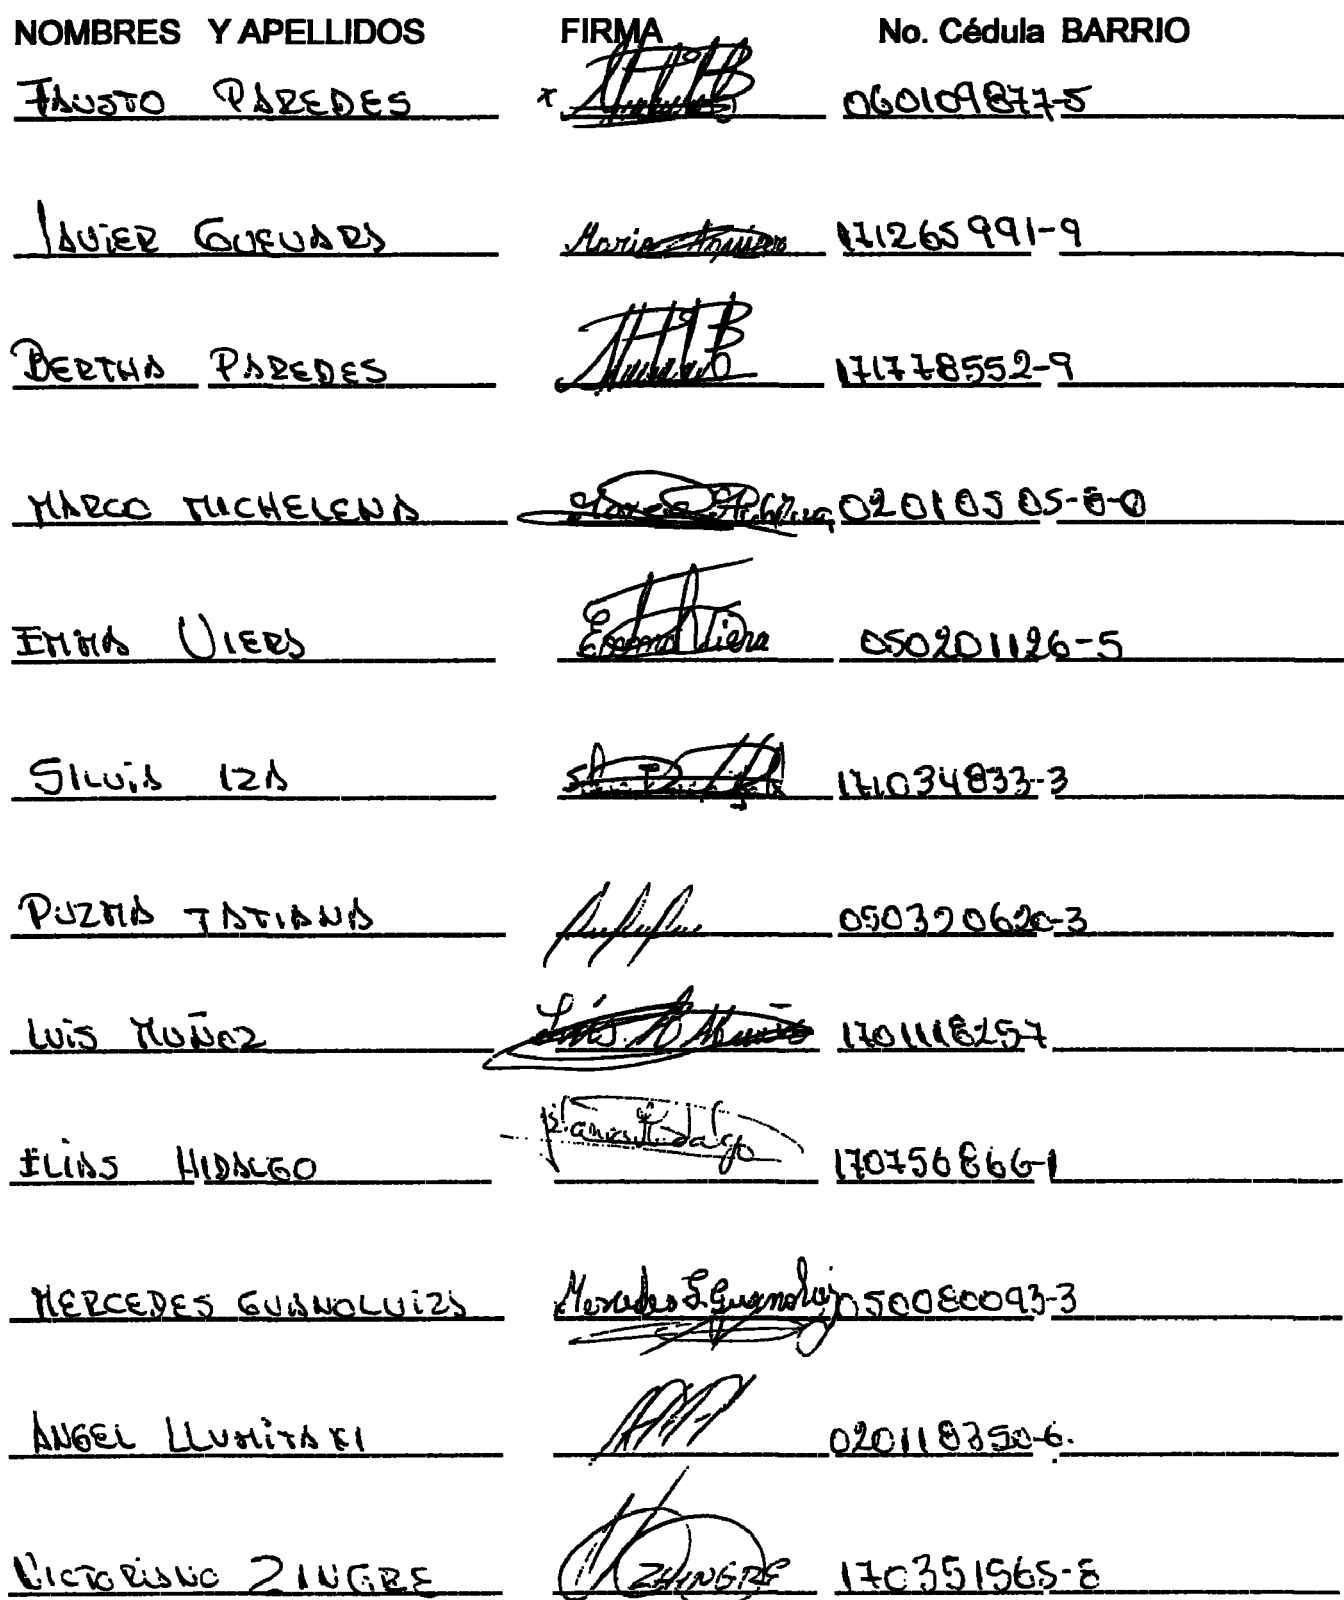 NOMBRES Y APELLIDOS FIRMA No. Cédula BARRIO
FAUSTO PAREDES x 060109877-5
JAVIER GUEVARA Maria Aguirre 171265991-9
BERTHA PAREDES 171778552-9
MARCO MICHELENA
EMMA VIERA Emma Viera 050201126-5
SILVIA IZA 171034833-3
PUZMA TATIANA 050320620-3
LUIS MUÑOZ Luis Muñoz 1701118257
ELIAS HIDALGO Hidalgo 170756866-1
MERCEDES GUANOLUIZA Mercedes 050080093-3
ANGEL LLUMITAXI 020118350-6.
VICTORIANO ZINGRE ZHINGRE 170351565-8